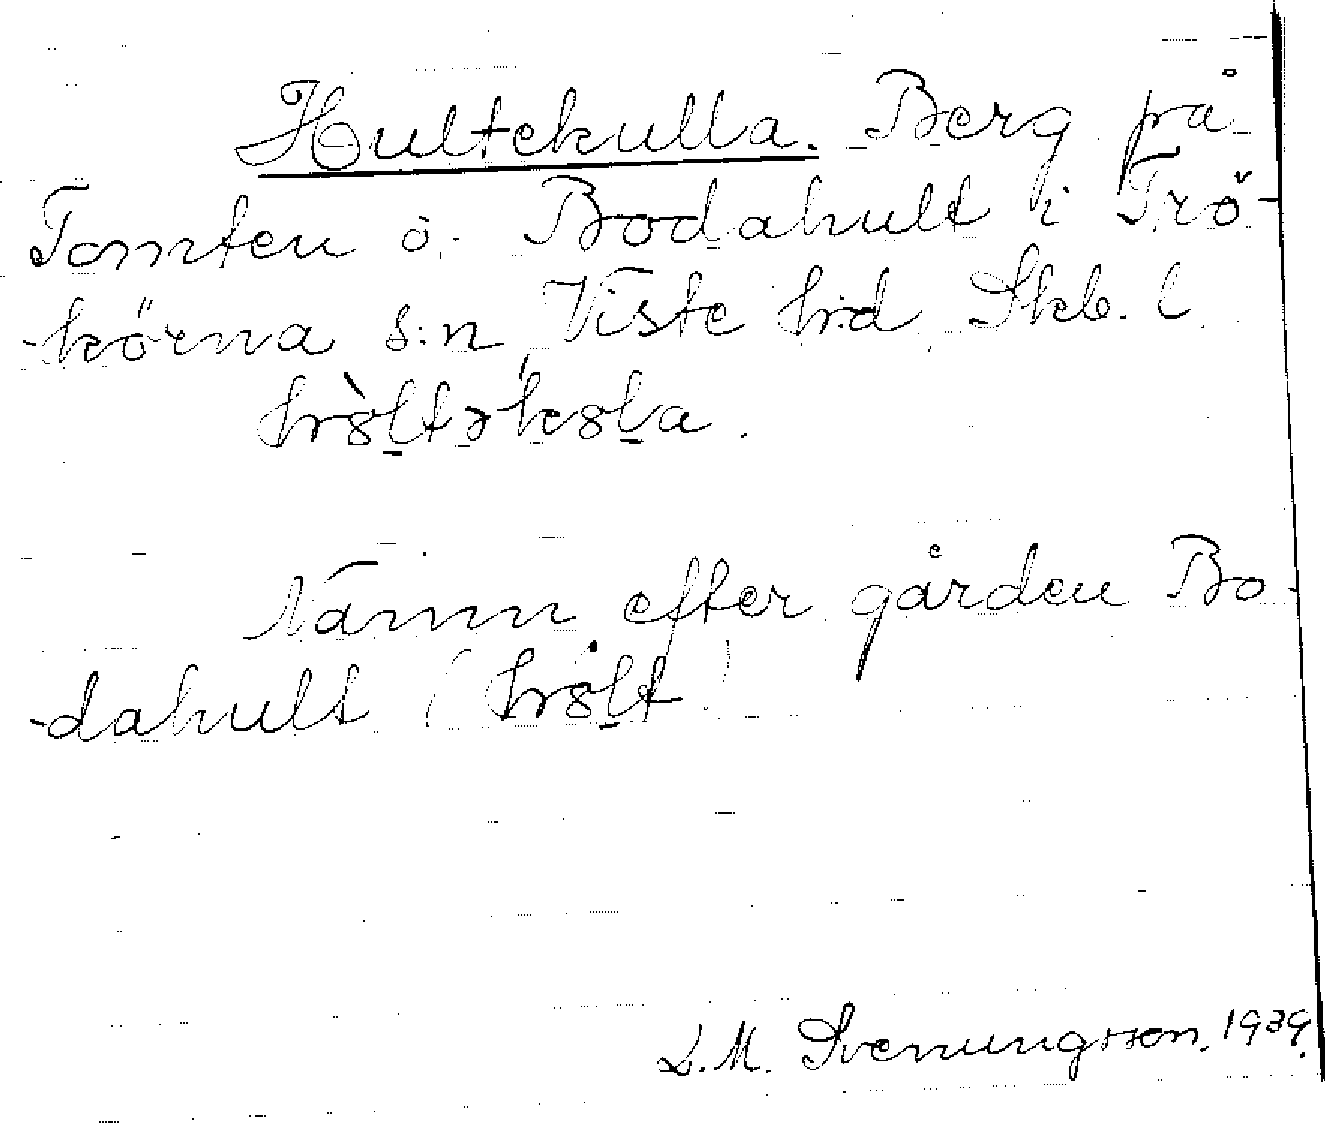 Hultekulla. Berg på
Tomten ö. Bodahult i Trö-
-körna s:n, Viste h:d Skb. l.
Nämn. efter gården Bo-
-dahult (
L.M. Svenungsson. 1939.